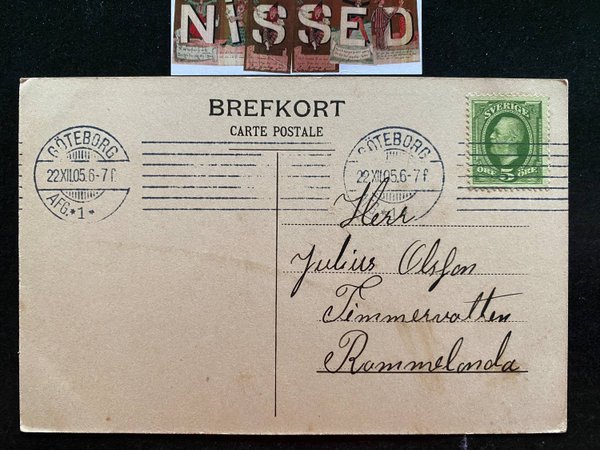 NISSED
BREFKORT
CARTE POSTALE
GÖTEBORG
22XII.05.6-7 F
AFG.*1*
GÖTEBORG
22XII.05.6-7 F
1
SVERIGE
ÖRE 5 ÖRE
Herr
Julius Olsson
Timmervatten
Rammelanda